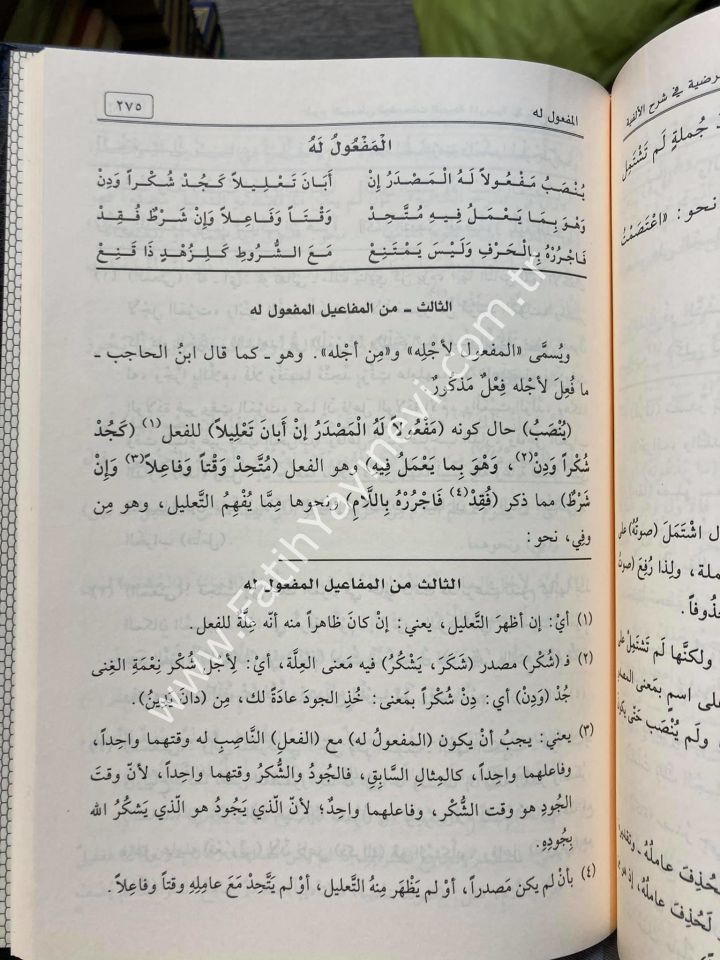 المفعول له
٢٧٥
الْمَفْعُولُ لَهُ
يُنْصَبُ مَفْعُولاً لَهُ الْمَصْدَرُ إنْ أَبَانَ تَعْلِيلاً كَجُدْ شُكْراً وَدِنْ
وَهْوَ بِمَا يَعْمَلُ فِيهِ مُتَّحِدْ وَقْتاً وَفَاعِلاً وَإِنْ شَرْطٌ فُقِدْ
فَاجْرُرْهُ بِالْحَرْفِ وَلَيْسَ يَمْتَنِعْ مَعَ الشُّرُوطِ كَلِزُهْدٍ ذَا قَنِعْ
الثالث ـ من المفاعيل المفعول له
ويُسمَّى «المفعول لأجْلِه» و«مِن أجْله». وهو ـ كما قال ابنُ الحاجب ـ
ما فُعِلَ لأجْله فِعْلٌ مَذكورٌ
(يُنْصَبُ) حال كونه (مَفْعُولاً لَهُ الْمَصْدَرُ إنْ أَبانَ تَعْلِيلاً) للفعل(١) (كَجُدْ
شُكْراً وَدِنْ)(٢)، وَهْوَ بِما يَعْمَلُ فِيهِ) وهو الفعل (مُتَّحِدْ وَقْتاً وَفاعِلاً)(٣) وَإِنْ
شَرْطٌ) مما ذكر (فُقِدْ)(٤) فَاجْرُرْهُ بِاللَّامِ) ونحوها مِمَّا يُفْهِمُ التَّعليل، وهو مِن
وفِي، نحو:
الثالث من المفاعيل المفعول له
(١) أيْ: إن أظهرَ التَّعليل، يعني: إنْ كانَ ظاهراً منه أنّه عِلَّة للفعل.
(٢) فـ (شُكْر) مصدر (شَكَرَ، يَشْكُرُ) فيه مَعنى العِلَّة، أيْ: لِأَجل شُكْر نِعْمَةِ الغِنى
جُدْ (وَدِنْ) أي: دِنْ شُكْراً بمَعنى: خُذِ الجودَ عادَةً لك، مِن (دانَ يَدِينُ).
(٣) يعني: يجبُ أنْ يكون (المفعولُ له) مع (الفعلِ) النَّاصِبِ له وقتهما واحِداً،
وفاعلهما واحِداً، كالمِثالِ السَّابِقِ، فالجُودُ والشُّكرُ وقتهما واحِداً، لأنّ وقتَ
الجُودِ هو وقت الشُّكْر، وفاعلهما واحِدٌ؛ لأنّ الّذي يَجُودُ هو الّذي يَشكُرُ الله
بِجُودِهِ.
(٤) بأنْ لم يكن مَصدراً، أوْ لم يَظْهَر مِنهُ التَّعليل، أوْ لم يَتَّحِدْ مَعَ عامِلِهِ وقتاً وفاعِلاً.
www.FatihYayinevi.com.tr
في شرح الألفية
جُملةٍ لَم تَشْتَمِل
نحو: «اعْتَصَمْتُ
اشْتَمَلَ (صوتُهُ) على
ولِذا رُفِعَ (صوتُ
ولكنَّها لَم تَشْتَمِلْ على
على اسمٍ بمَعنى المصدر
ولَم يُنْصَب حَتّى يكون
حُذِفَ عاملُهُ
لَحُذِفَ عامِلُهُ، إذ هو